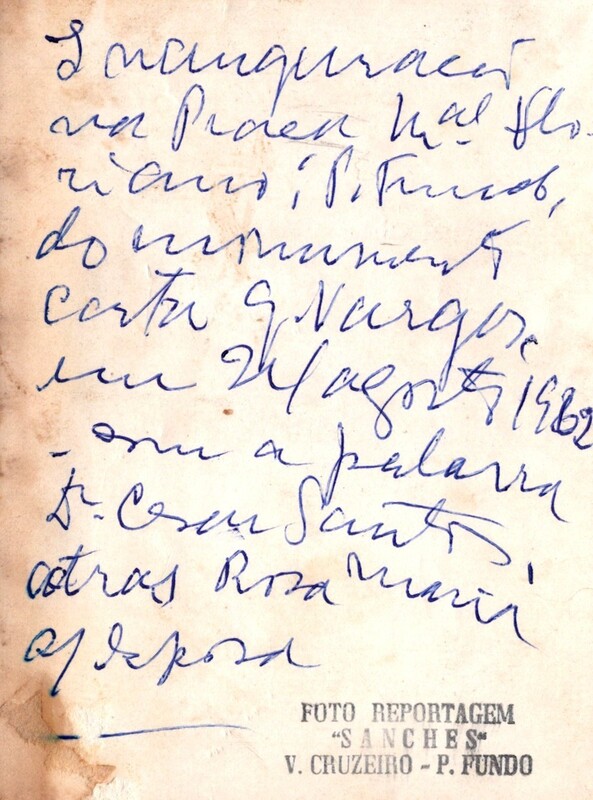 Inauguração
na Praça Mal Flo-
riano, P. Fundo,
do monumento
carta G. Vargas,
em 24 agosto 1962
- com a palavra
Dr. Cesar Santos,
atras Rosa Maria
a esposa
FOTO REPORTAGEM
"SANCHES"
V. CRUZEIRO - P. FUNDO